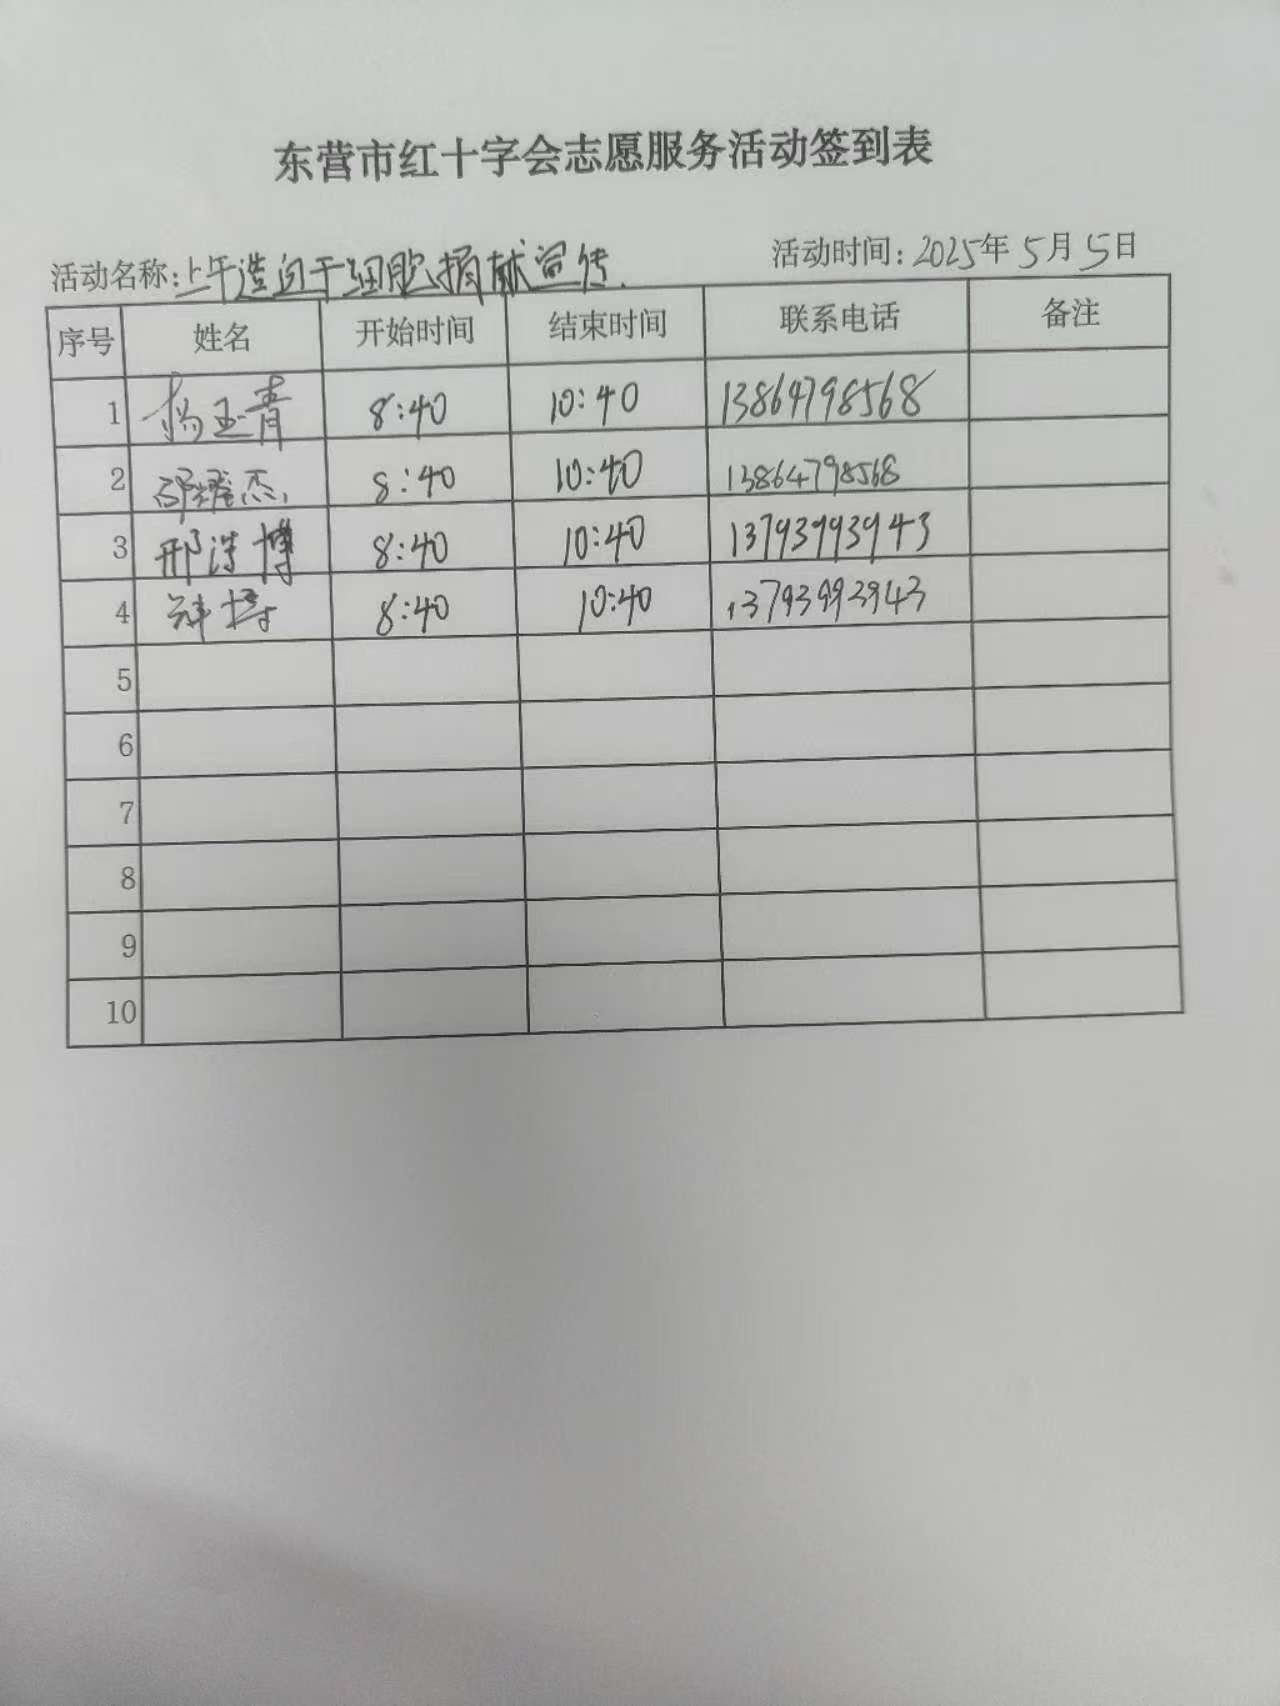 东营市红十字会志愿服务活动签到表
活动名称:上午造血干细胞捐献宣传. 活动时间:2025年5月5日
序号 姓名 开始时间 结束时间 联系电话 备注
1 杨玉青 8:40 10:40 13864798568
2 邵耀杰 8:40 10:40 13864798568
3 邢浩博 8:40 10:40 13793993943
4 8:40 10:40 13793993943
5
6
7
8
9
10